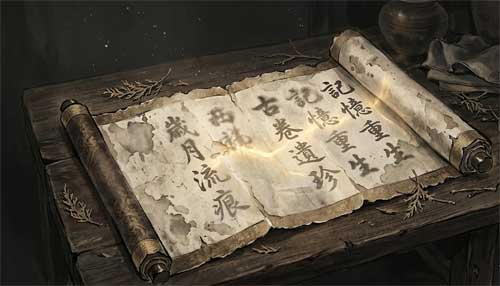 記憶重生
記憶重生
古卷遺珍
西
歲月流痕